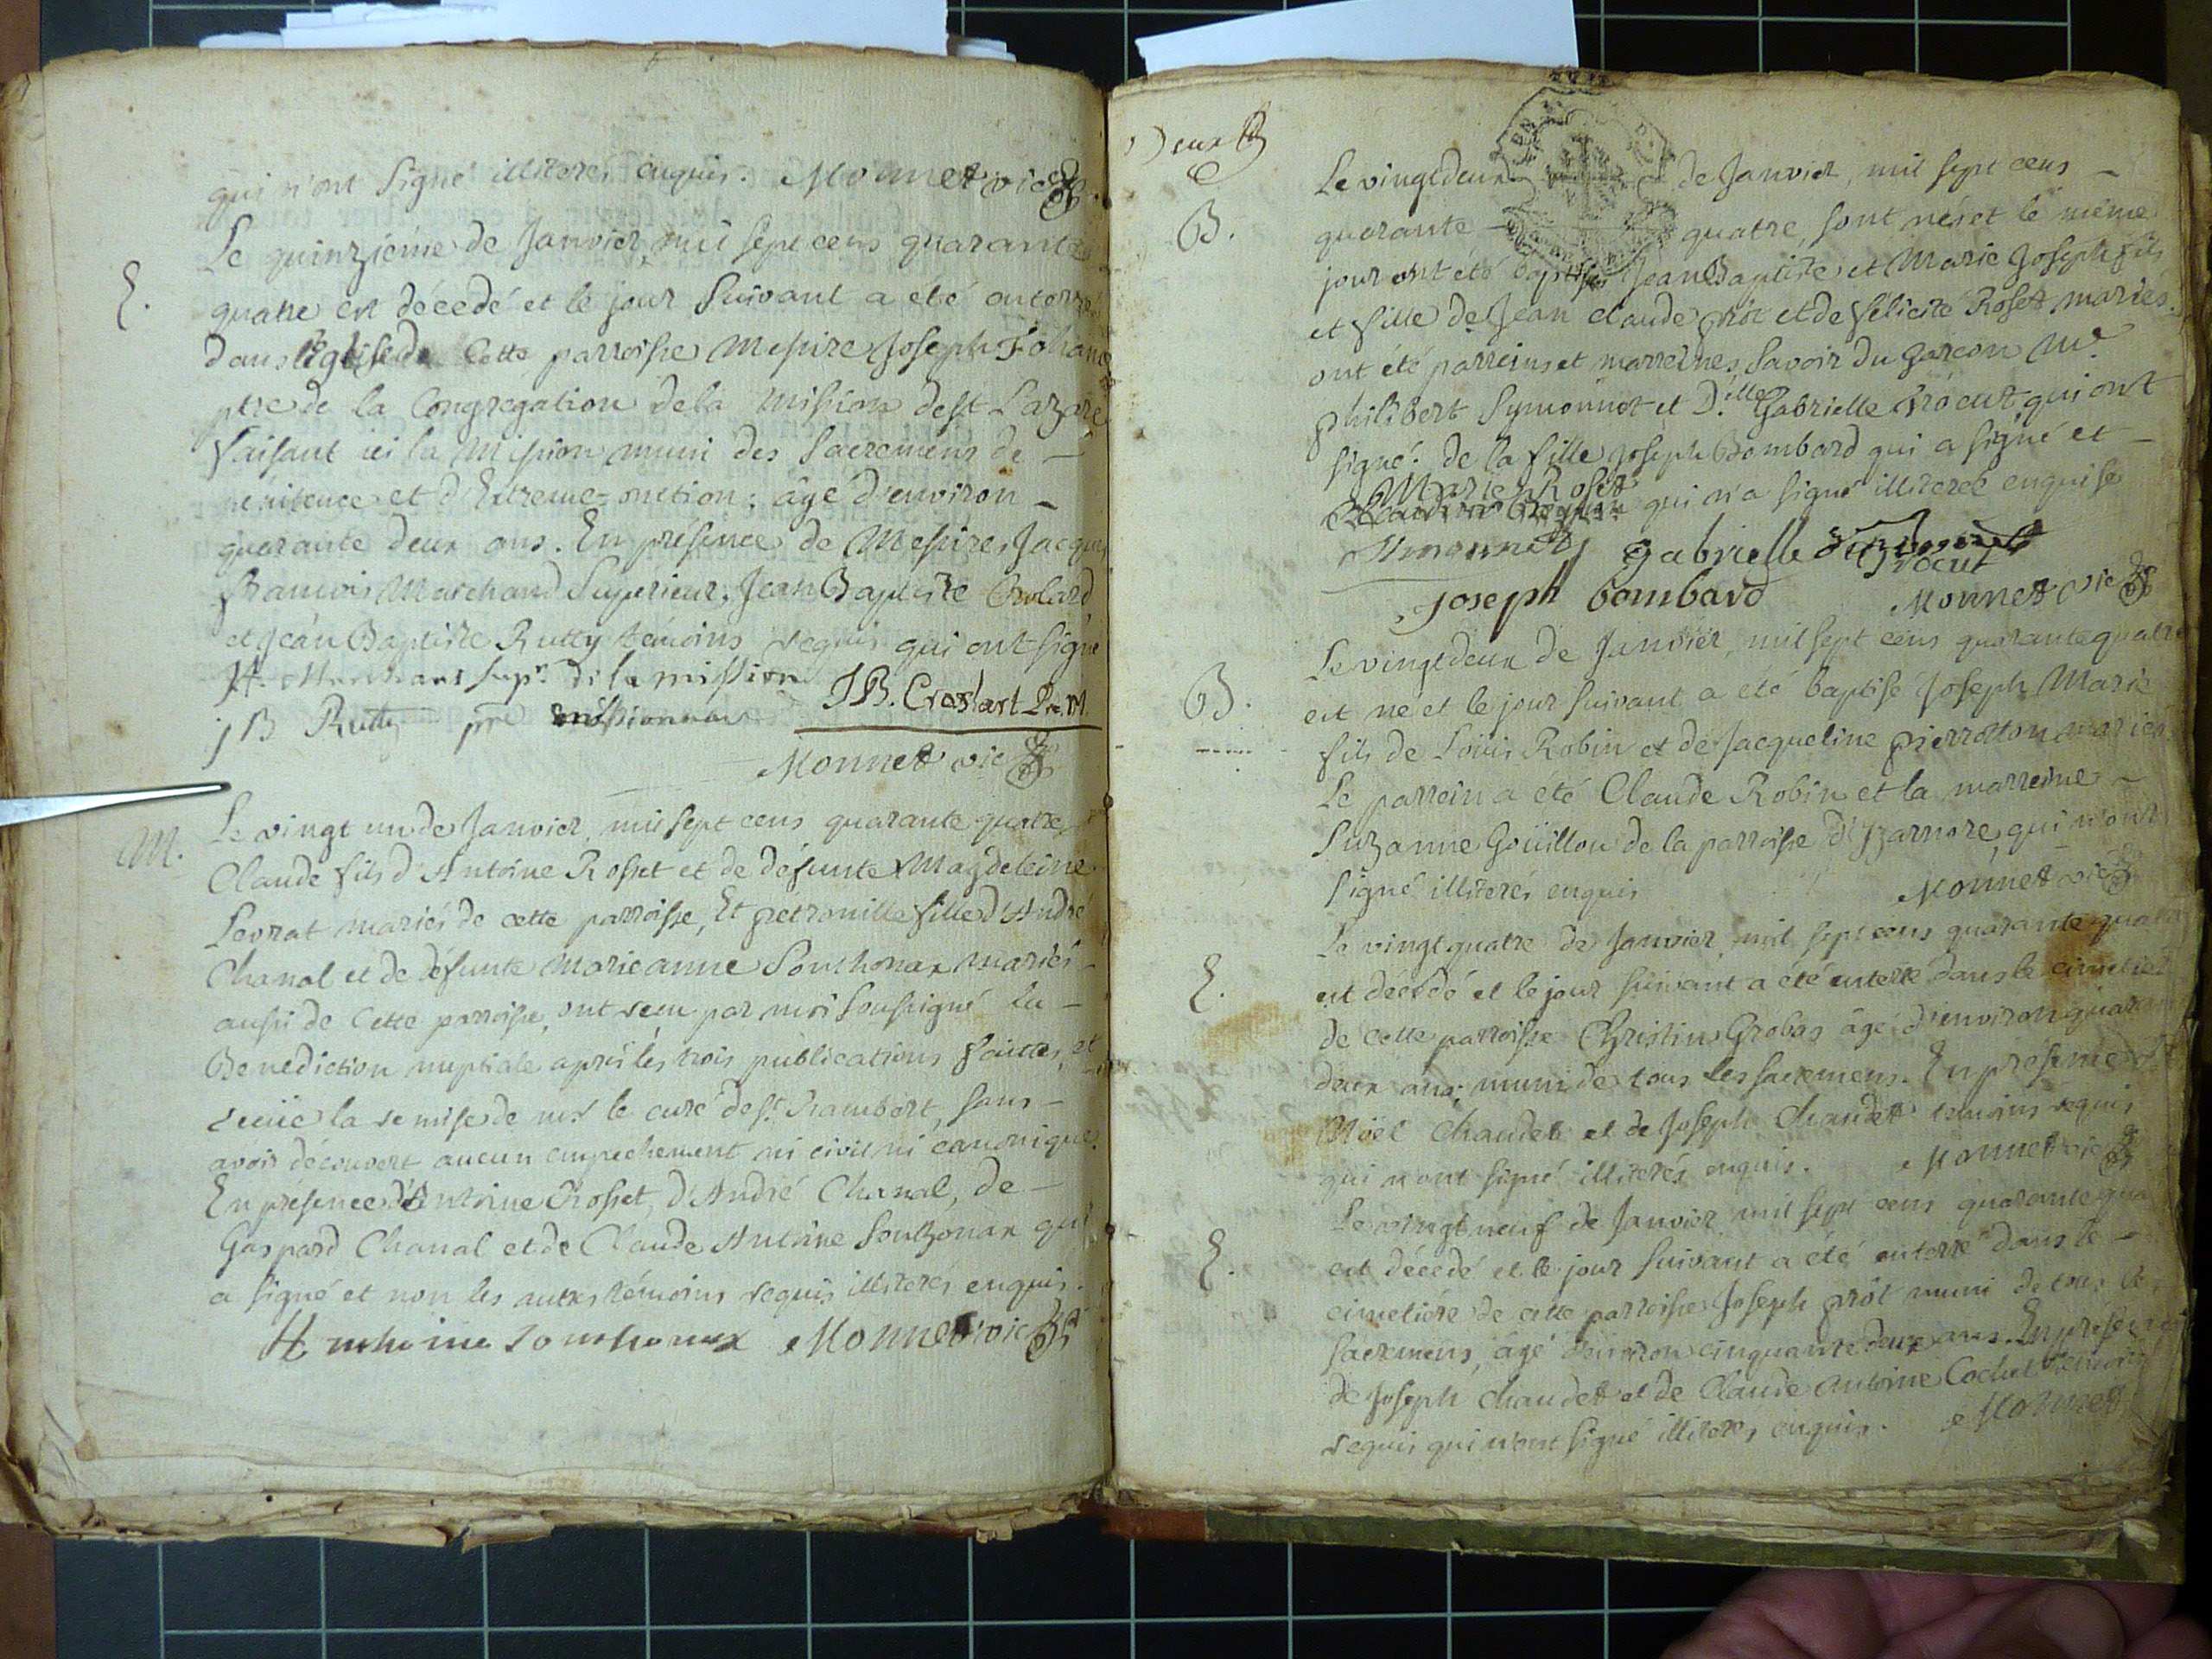 qui n'ont signé illiterés enquis. Monnet vic
Le quinzième de Janvier, mil sept cens quarante
E.
quatre est décedé et le jour suivant a été enterré
dans l'église de cette parroisse Messire Joseph
ptre de la Congregation de la Mission de st Lazare
faisant ici la Mission muni des sacremens de –
penitence et d'Extreme-onction; âgé d'environ –
quarante deux ans. En présence de Messires Jacques
François Marchand Supérieur, Jean Baptiste
et Jean Baptiste Rutty témoins requis qui ont signé
supr. de la mission
JB. Croslart
j B Rutty pre missionnaire
Monnet vic
M.
Le vingt un de Janvier, mil sept cens quarante quatre
Claude fils d'Antoine Rosset et de défunte Magdeleine
Levrat mariés de cette parroisse, Et pétronille fille d'André
Chanal et de défunte Marieanne Southonax mariés –
aussi de cette parroisse, ont receu par moi soussigné la –
Benediction nuptiale après les trois publications faittes, et
receüe la remise de mr le curé de st Rambert, sans –
avoir découvert aucun empechement ni civil ni canonique.
En présence d'Antoine Rosset, d'André Chanal, de –
Gaspard Chanal et de Claude Antoine Southonax qui
a signé et non les autres témoins requis illiterés enquis.
Anthoine Southonax Monnet vic
Deux
Le vingtdeux de Janvier, mil sept cens –
B.
quarante – quatre, sont nés et le même
jour ont été baptisés Jean Baptiste et Marie Joseph fils
et fille de Jean Claude prôt et de félicité Roset mariés.
ont été parreins et marreines, savoir du garcon Mre
philibert Symonnot et D.elle Gabrielle qui ont
signé. de la fille Joseph Bombard qui a signé et –
Marie Roset
qui n'a signé illiterée enquise
Simonnet gabrielle
Joseph bombard Monnet vic
Le vingtdeux de Janvier, mil sept cens quarante quatre
B.
est né et le jour suivant a été baptisé Joseph Marie
fils de Loüis Robin et de Jacqueline pierrotton mariés
Le parrein a été Claude Robin et la marreine –
Suzanne Goüillou de la parroisse d'Yzarnore, qui n'ont
signé illiterés enquis Monnet vic
Le vingtquatre de Janvier mil sept cens quarante quatre
E.
est décédé et le jour suivant a été enterré dans le cimetière
de cette parroisse Christin Grobas âgé d'environ quarante
deux ans; muni de tous les sacremens. En présence de
Noël Chaudet et de Joseph Chaudet témoins requis
qui n'ont signé illiterés enquis. Monnet vic
Le vingt neuf de Janvier mil sept cens quarante quatre
E.
est décedé et le jour suivant a été enterré dans le –
cimetière de cette parroisse Joseph prôt muni de tous les
sacremens, âgé d'environ cinquante deux ans. En présence
de Joseph Chaudet et de Claude Antoine Cochet témoins
requis qui n'ont signé illiterés enquis. Monnet